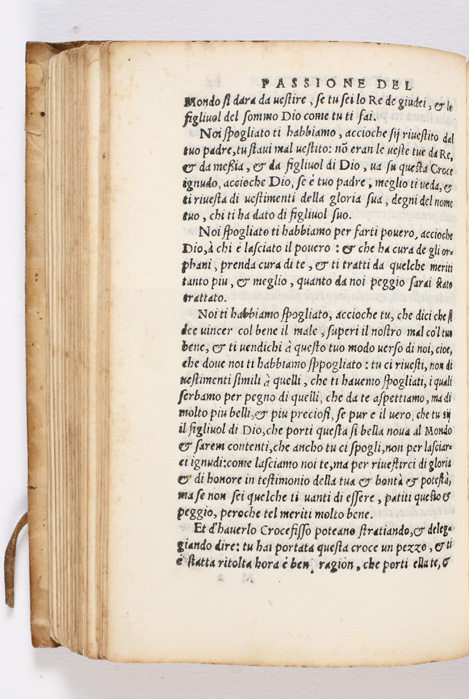 PASSIONE DEL
Mondo si dara da uestire, se tu sei lo Re de giudei, & le
figliuol del sommo Dio come tu ti fai.
Noi spogliato ti habbiamo, accioche sij riuestito dal
tuo padre, tu staui mal uestito: nõ eran le ueste tue da Re,
& da meßia, & da figliuol di Dio, ua su questa Croce
ignudo, accioche Dio, se è tuo padre, meglio ti ueda, &
ti riuesta di uestimenti della gloria sua, degni del nome
tuo, chi ti ha dato di figliuol suo.
Noi spogliato ti habbiamo per farti pouero, accioche
Dio, à chi è lasciato il pouero: & che ha cura de gli or-
phani, prenda cura di te, & ti tratti da quelche meriti
tanto piu, & meglio, quanto da noi peggio sarai stato
trattato.
Noi ti habbiamo spogliato, accioche tu, che dici che si
dee uincer col bene il male, superi il nostro mal co'l tuo
bene, & ti uendichi à questo tuo modo uerso di noi, cioe,
che doue noi ti habbiamo sppogliato: tu ci riuesti, non di
uestimenti simili à quelli, che ti hauemo spogliati, i quali
serbamo per pegno di quelli, che da te aspettiamo, ma di
molto piu belli, & piu preciosi, se pur e il uero, che tu sij
il figliuol di Dio, che porti questa si bella noua al Mondo
& sarem contenti, che ancho tu ci spogli, non per lasciar-
ci ignudi: come lasciamo noi te, ma per riuestirci di gloria
& di honore in testimonio della tua & bontà & potestà,
ma se non sei quelche ti uanti di essere, patiti questo &
peggio, peroche tel meriti molto bene.
Et d'hauerlo Crocefisso poteano stratiando, & deleg-
giando dire: tu hai portata questa croce un pezzo, & ti
è statta ritolta hora è ben ragion, che porti ella te, &